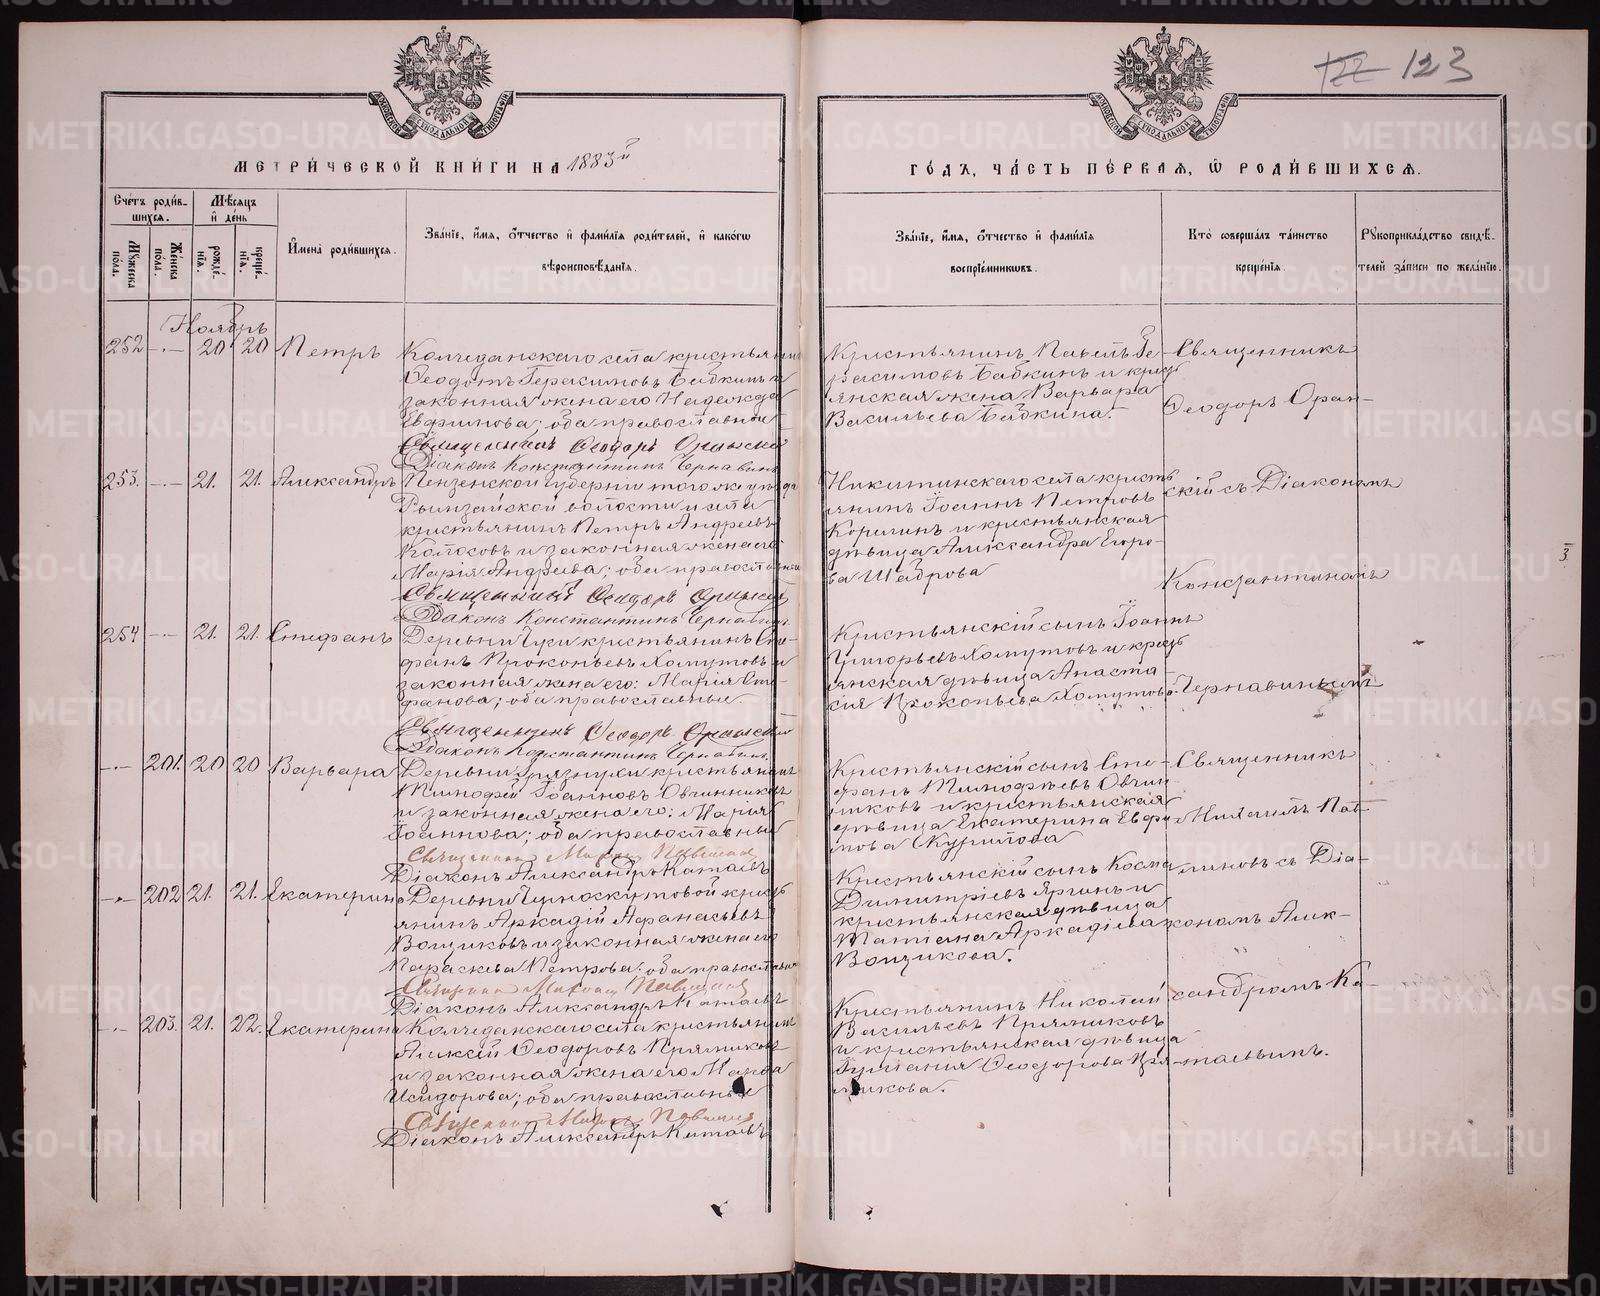 122 123
МОСКОВСКОЙ СѴНОДАЛЬНОЙ ТИПОГРАФІИ
МОСКОВСКОЙ СѴНОДАЛЬНОЙ ТИПОГРАФІИ
МЕТРИ́ЧЕСКОЙ КНИ́ГИ НА 1883й
ГО́ДЪ, ЧА́СТЬ ПЕ́РВАЯ, Ѡ РОДИ́ВШИХСѦ.
Сче́тъ роди́в-
шихся.
Мѣ́сяцъ
и҆ де́нь
Мꙋ́жеска по́ла.
Же́нска по́ла.
рожде́-нїѧ.
креще́-нїѧ.
И҆мена̀ роди́вшихся.
Зва́нїе, и҆́мя, ѻ҆́тчество и҆ фами́лїя роди́телей, и҆ како́гѡ
вѣроисповѣ́данїя.
Зва́нїе, и҆́мя, ѻ҆́тчество и҆ фами́лїя
воспрїе́мникѡвъ.
Кто̀ соверша́лъ та́инство
креще́нїя.
Рꙋкоприкла́дство свидѣ́-
телей за́писи по жела́нїю.
Ноябрь
252 -.- 20 20 Петръ
Колчеданскаго села крестьянинъ
Ѳеодотъ Герасимовъ Бабкинъ и
законная жена его Надежда
Евфимова; оба православные
Священникъ Ѳеодоръ Оранскій
Діаконъ Константинъ Чернавинъ
Крестьянинъ Павелъ Ге-
расимовъ Бабкинъ и крест
янская жена Варвара
Васильева Бабкина.
Священникъ
Ѳеодоръ Оран-
253. -.- 21. 21. Александръ
Пензенской губерніи того же уѣзда
Рымзайской волости и села
крестьянинъ Петръ Андреевъ
Колосовъ и законная жена его
Марія Андреева; оба православные
Священникъ Ѳеодоръ Оранскій
Діаконъ Константинъ Чернавинъ
Никитинскаго села кресть
янинъ Іоаннъ Петровъ
Корелинъ и крестьянская
дѣвица Александра Егоро-
ва Шаброва
скій съ Діакономъ
Константиномъ
254 -.- 21. 21. Стефанъ
Деревни Чуги крестьянинъ Сте-
фанъ Прокопьевъ Хомутовъ и
законная жена его: Марія Сте-
фанова; оба православные.
Священникъ Ѳеодоръ Оранскій
Діаконъ Константинъ Чернавинъ
Крестьянскій сынъ Іоаннъ
Григорьевъ Хомутовъ и крест
янская дѣвица Анаста
сія Прокопьева Хомутова.
Чернавинымъ
-.- 201. 20 20 Варвара
Деревни Грязнухи крестьянинъ
Тимофей Іоанновъ Овчинниковъ
и законная жена его: Марія
Іоаннова; оба православные
Священникъ Михаилъ Павлиновъ
Діаконъ Александръ Катаевъ
Крестьянскій сынъ Сте-
фанъ Тимофѣевъ Овчин
никовъ и крестьянская
дѣвица Екатерина Евфи-
мова Курилова
Священникъ
Михаилъ Пав-
-.- 202 21. 21. Екатерина
Деревни Черноскутовой крест
янинъ Аркадій Аѳанасьевъ
Вощиковъ и законная жена его
Параскева Петрова: оба православные
Священникъ Михаилъ Павлиновъ
Діаконъ Александръ Катаевъ
Крестьянскій сынъ Косма
Димитріевъ Яргинъ и
крестьянская дѣвица
Татіана Аркадіева
Вощикова.
линовъ съ Діа-
кономъ Алек-
-.- 203. 21. 22. Екатерина
Колчеданскаго села крестьянинъ
Алексѣй Ѳеодоровъ Пряниковъ
и законная жена его Марѳа
Исидорова; оба православные
Священникъ Михаилъ Павлиновъ
Діаконъ Александръ Катаевъ
Крестьянинъ Николай
Васильевъ Пряниковъ
и крестьянская дѣвица
Гуліанія Ѳеодорова Пря-
никова.
сандромъ Ка-
таевымъ.
METRIKI.GASO-URAL.RU